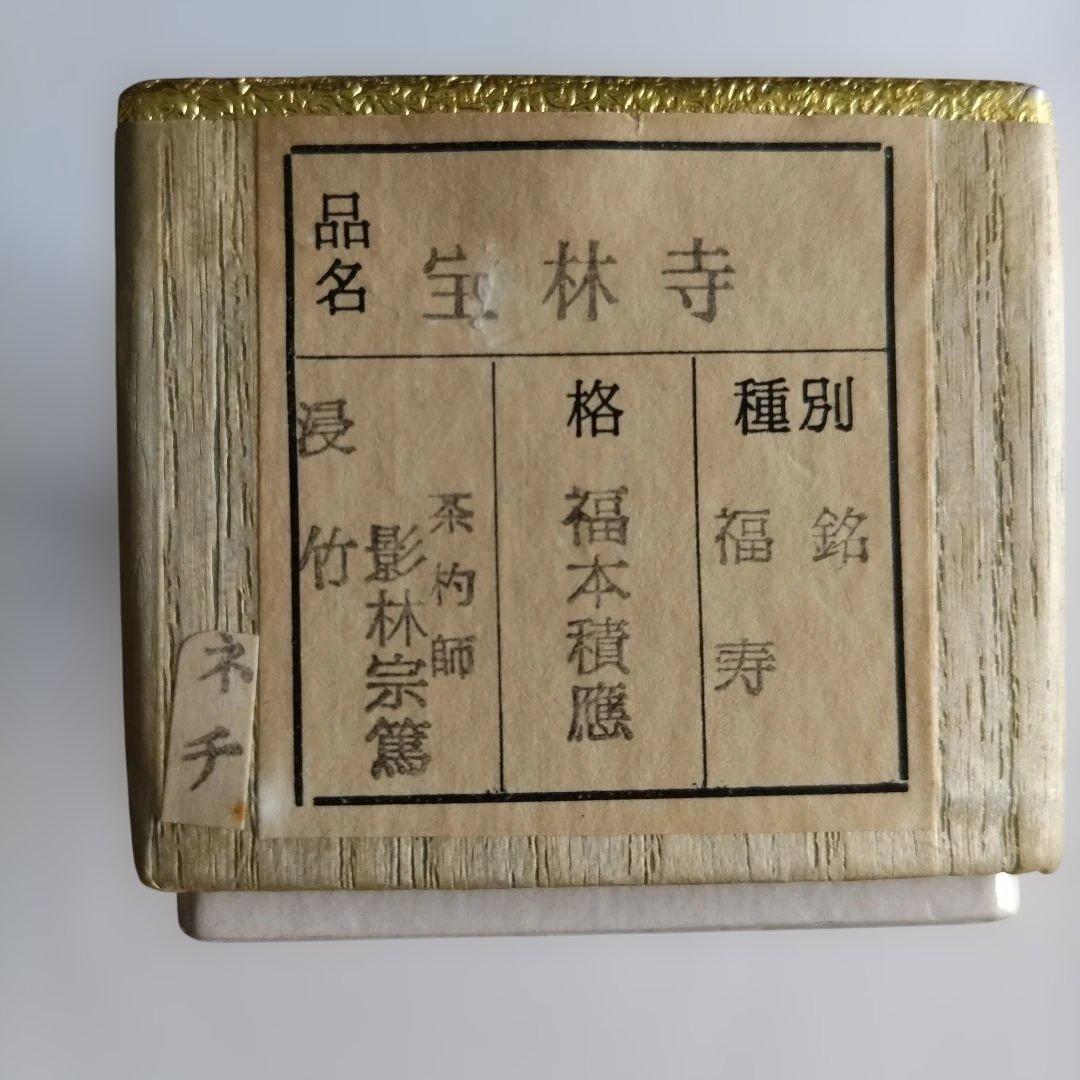 品名
宝林寺
種別
銘
福寿
格
福本積應
茶杓師
影林宗篤
浸竹
ネチ